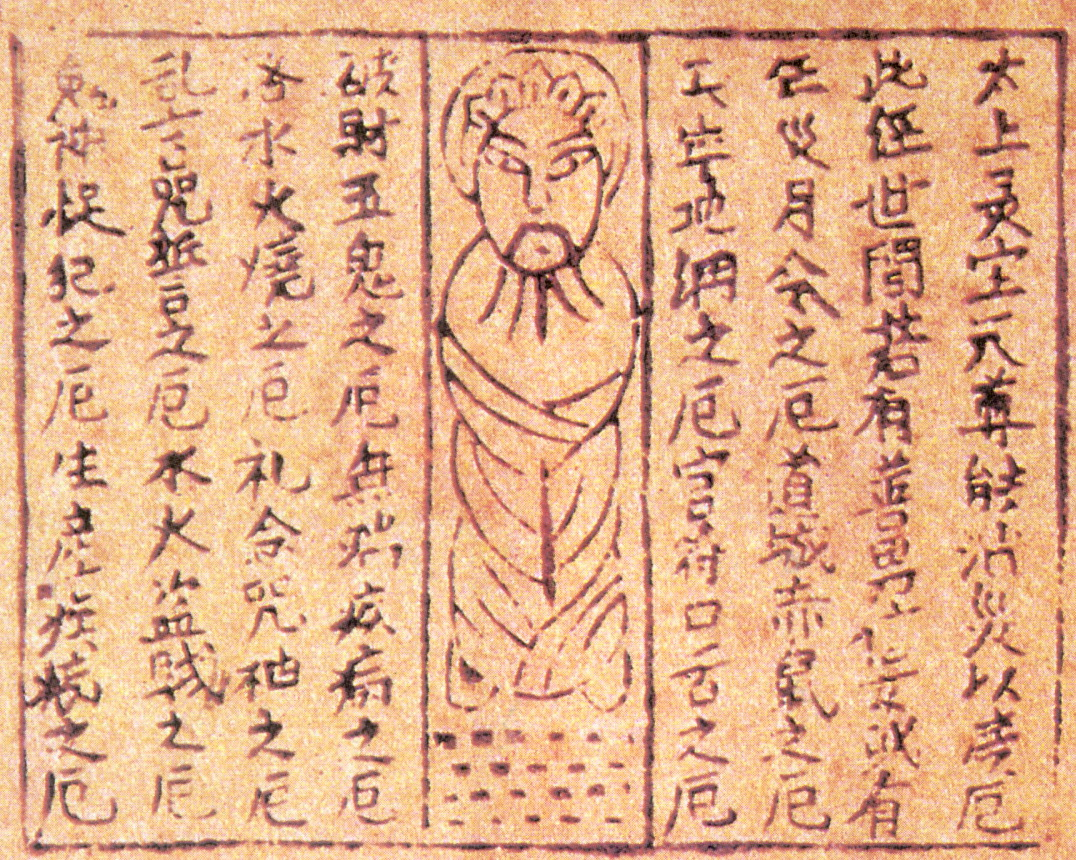 太上灵宝天尊能消災以度厄
此经世間若有善男女或有
災月令之厄道赤鼠之厄
天地網之厄官符口舌之厄
破財五鬼之厄無端疾病之厄
水火燒之厄礼合咒之厄
乱言咒誓之厄水火盜賊之厄
鬼神捉犯之厄生産之厄